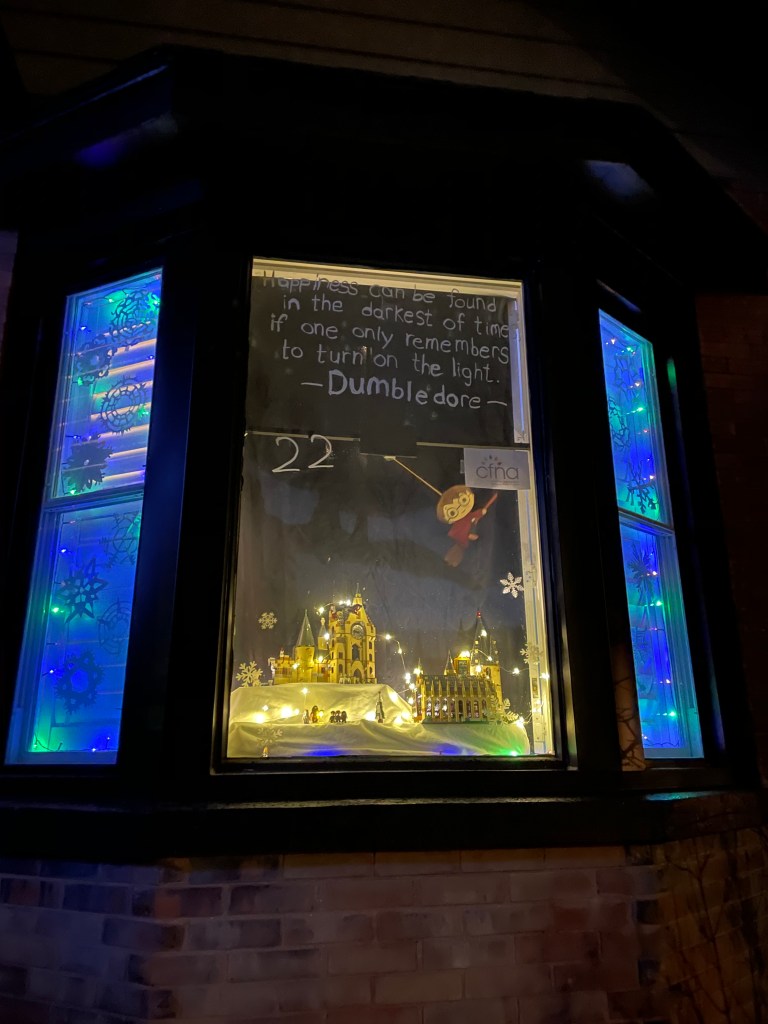 Happiness can be found
in the darkest of time
if one only remembers
to turn on the light.
— Dumbledore —
22
cfna